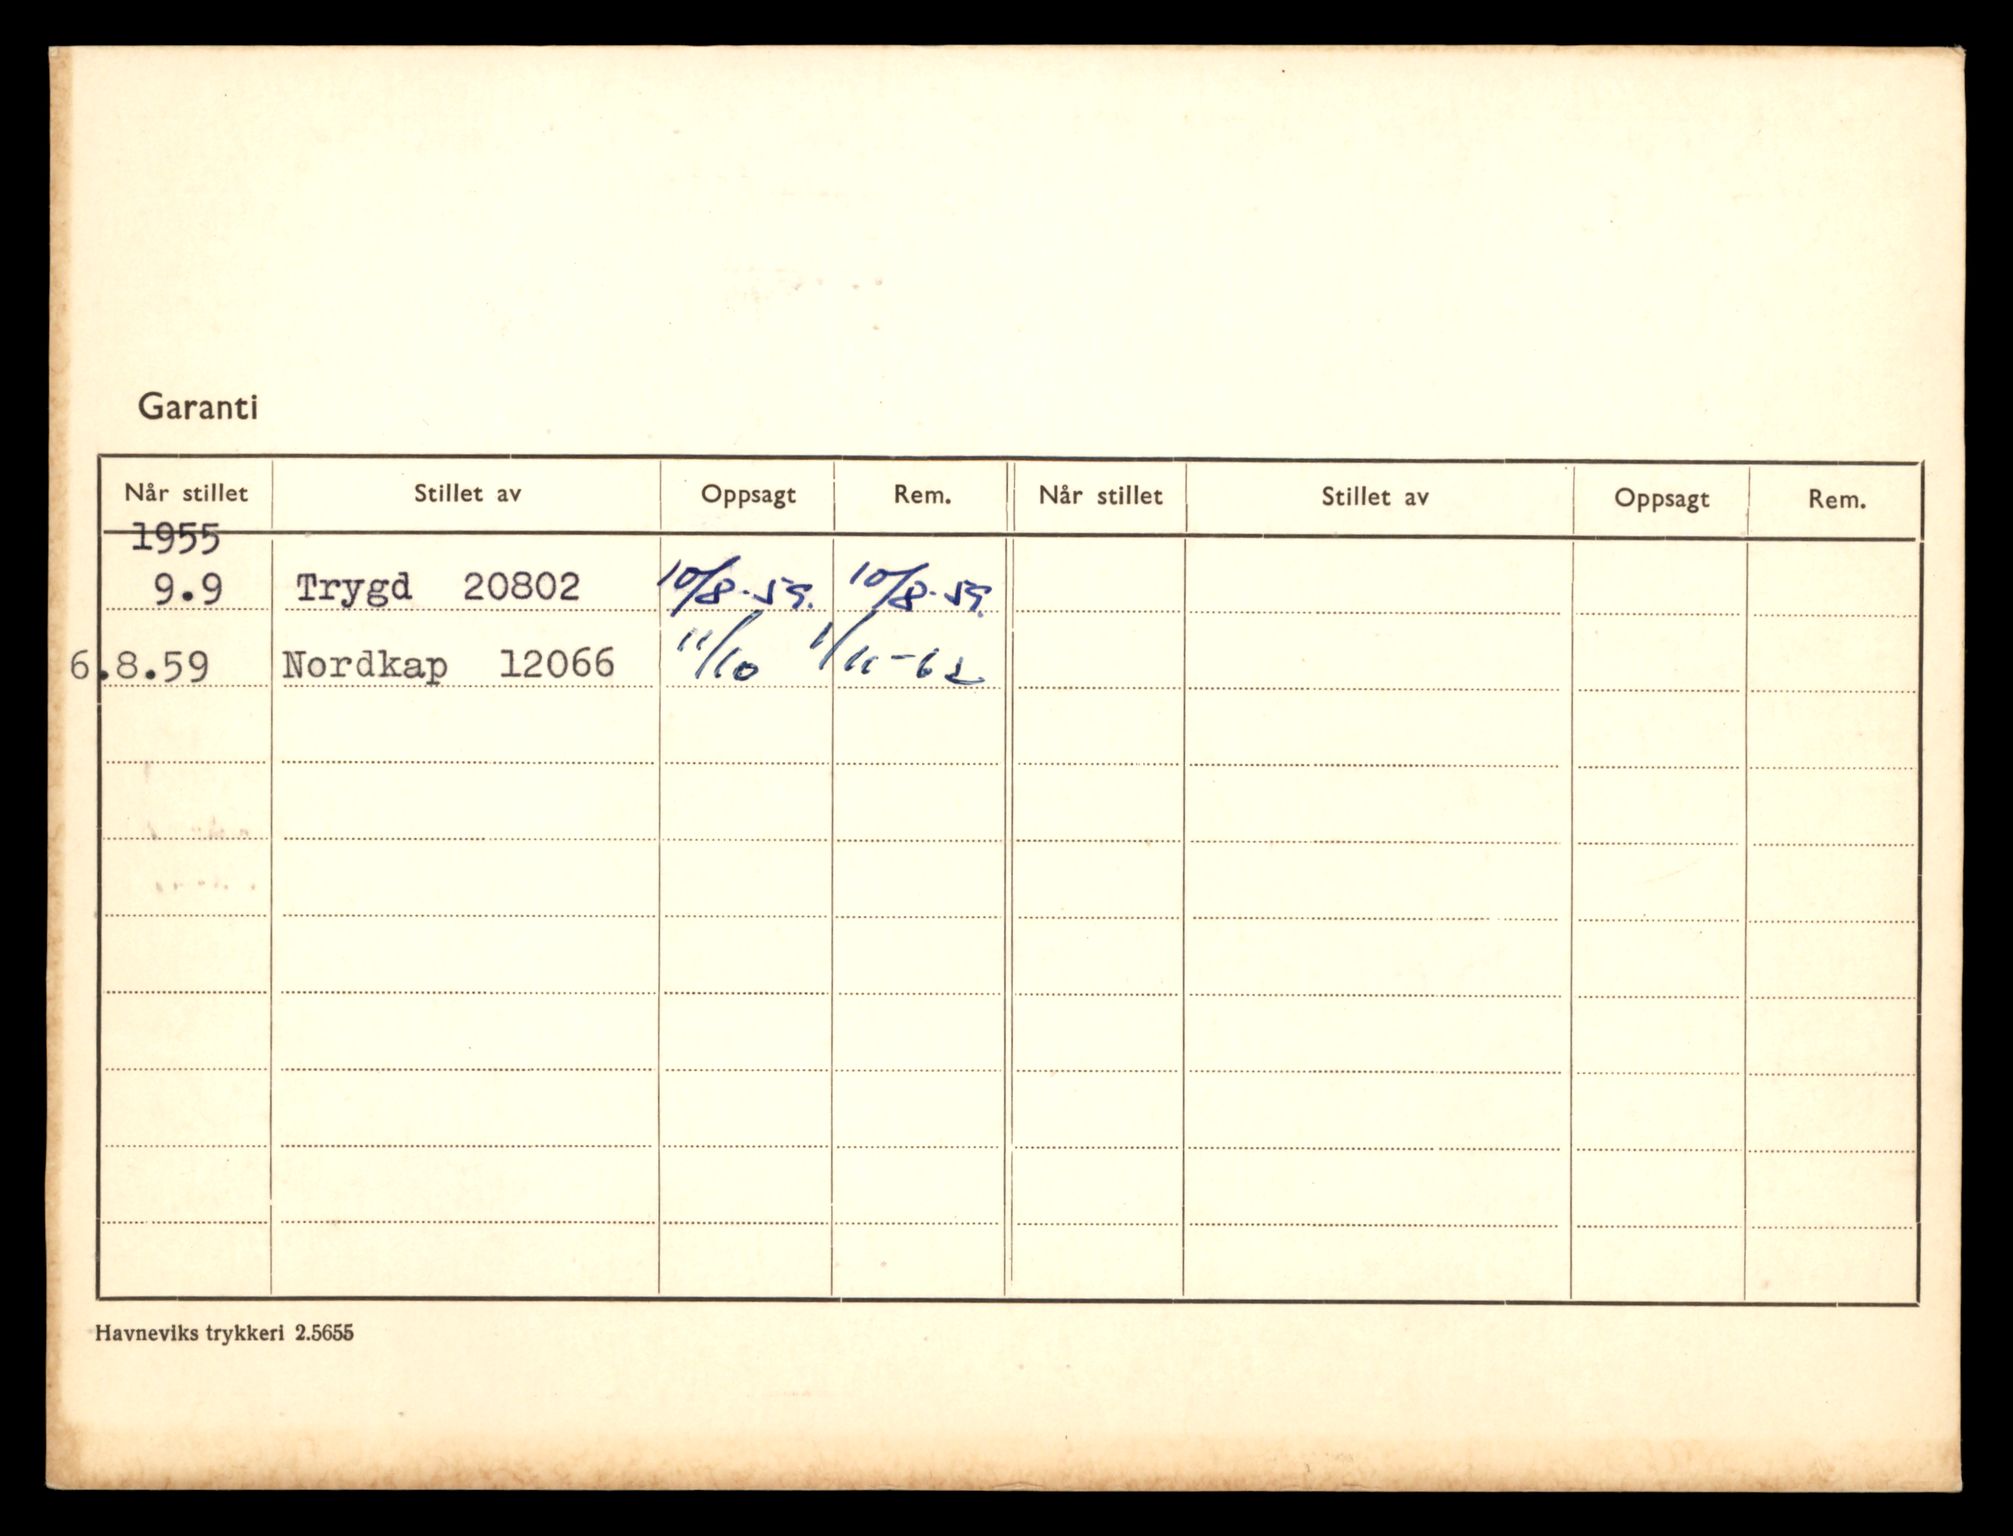 Garanti
Når stillet Stillet av Oppsagt Rem. Når stillet Stillet av Oppsagt Rem.
1955
9.9 Trygd 20802 10/8-59. 10/8-59.
6.8.59 Nordkap 12066 11/10 1/11-62
Havneviks trykkeri 2.5655